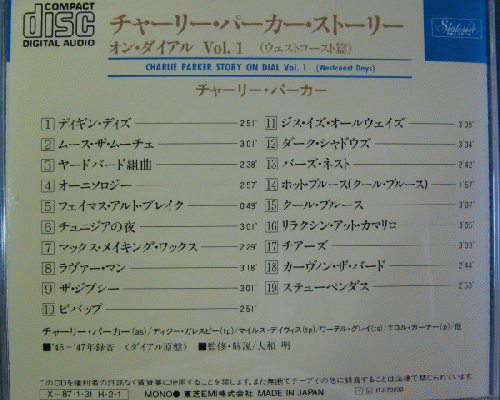 COMPACT
disc
DIGITAL AUDIO
チャーリー・パーカー・ストーリー
オン・ダイアル Vol. 1 (ウェストコースト篇)
Stateside
CHARLIE PARKER STORY ON DIAL Vol. 1 (Westcoast Days)
チャーリー・パーカー
1 ディギン・ディズ 2'51"
2 ムース・ザ・ムーチェ 3'01"
3 ヤードバード組曲 2'38"
4 オーニソロジー 2'57"
5 フェイマス・アルト・ブレイク 0'49"
6 チュニジアの夜 3'01"
7 マックス・メイキング・ワックス 2'29"
8 ラヴァー・マン 3'18"
9 ザ・ジプシー 3'01"
10 ビバップ 2'51"
11 ジス・イズ・オールウェイズ 3'09"
12 ダーク・シャドウズ 3'04"
13 バーズ・ネスト 2'42"
14 ホット・ブルース(クール・ブルース) 1'57"
15 クール・ブルース 3'07"
16 リラクシン・アット・カマリロ 3'05"
17 チアーズ 3'03"
18 カーヴィン・ザ・バード 2'44"
19 ステューペンダス 2'53"
チャーリー・パーカー(as)/ディジー・ガレスピー(tp)/マイルス・デイヴィス(tp)/ワーデル・グレイ(ts)/エロル・ガーナー(p)/他
■'46〜'47年録音 〈ダイアル原盤〉 ■監修・解説/大和 明
このCDを権利者の許諾なく賃貸業に使用することを禁じます。また無断でテープその他に録音することは法律で禁じられています。
X-87・1・31 H・2・1 MONO 東芝EMI株式会社 MADE IN JAPAN